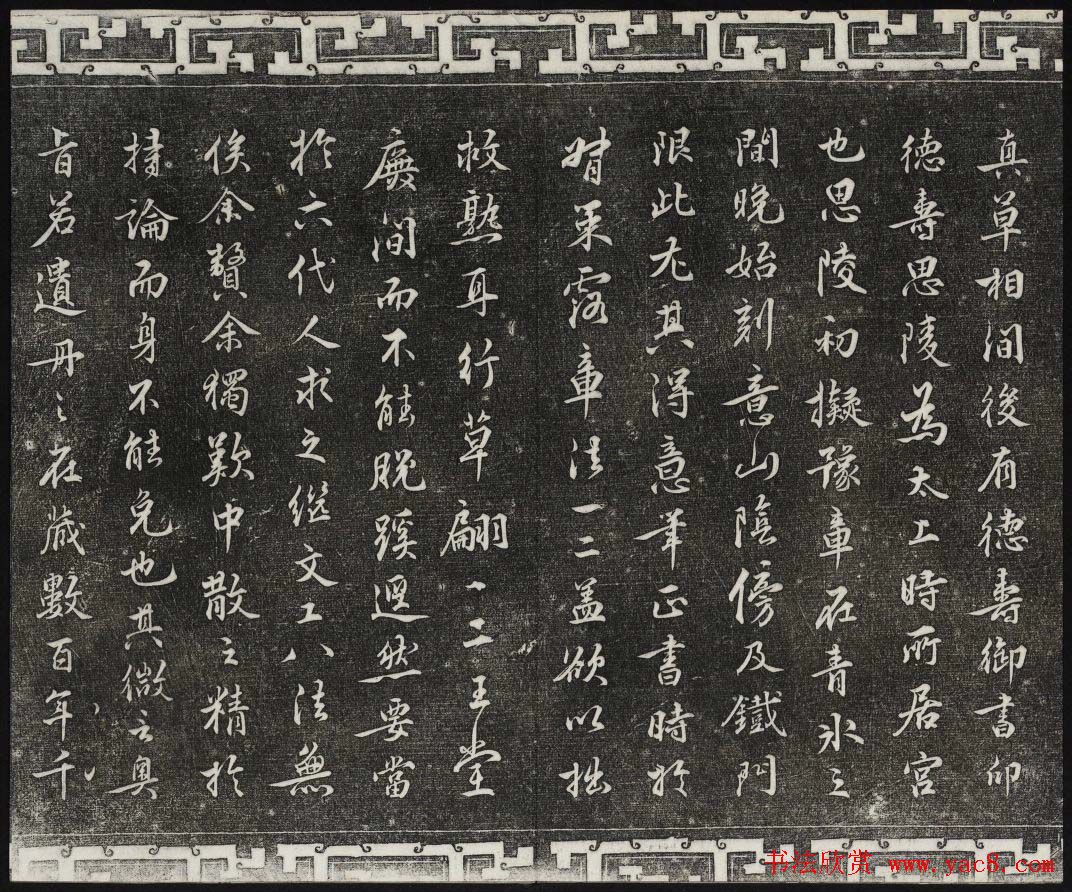 真草相間後有德壽御書印
德壽思陵為太上時所居宮
也思陵初擬豫章在青氷之
間晚始刻意山陰傍及鐵門
限此尤其得意筆正書時於
露章法一二蓋欲以拙
救熟耳行草翩翩二王堂
廡間而不能脫蹊逕然要當
於六代人求之継文工八法無
俟余贅余獨歎中散之精於
持論而身不能免也其微言奥
旨若遺丹之在藏數百年千
书法欣赏 www.yac8.com